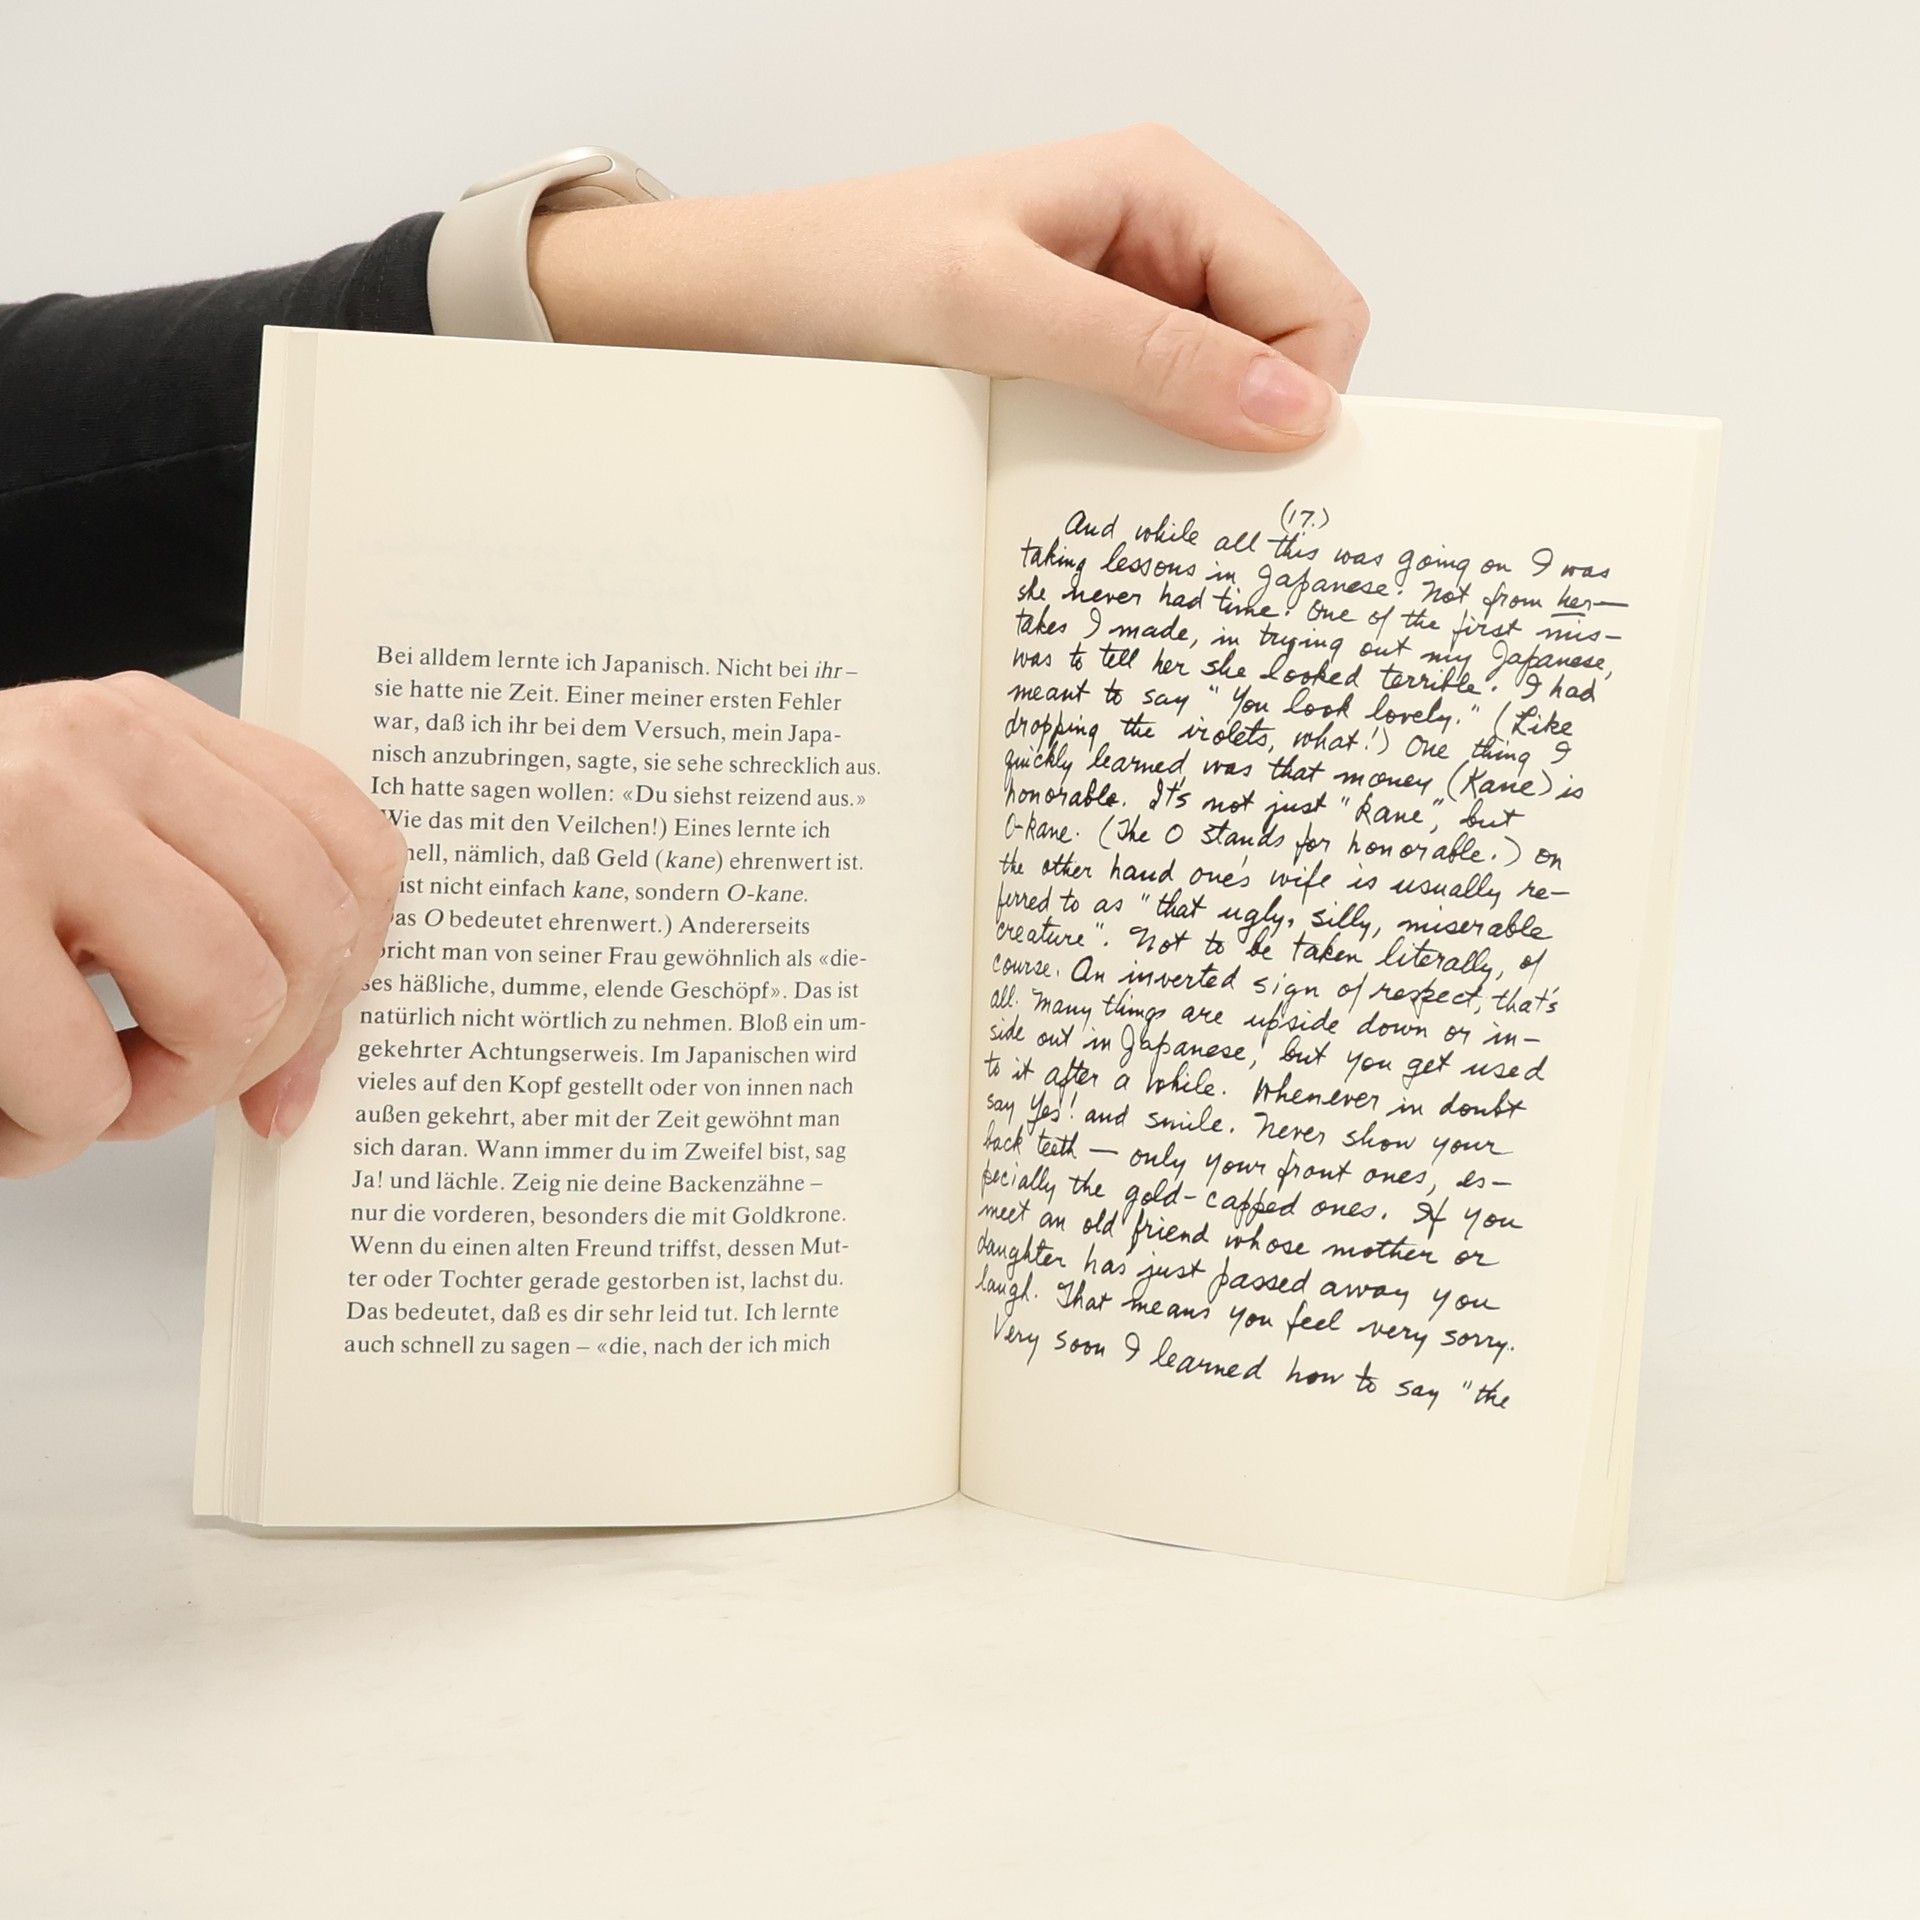 Bei alldem lernte ich Japanisch. Nicht bei ihr –
sie hatte nie Zeit. Einer meiner ersten Fehler
war, daß ich ihr bei dem Versuch, mein Japa-
nisch anzubringen, sagte, sie sehe schrecklich aus.
Ich hatte sagen wollen: «Du siehst reizend aus.»
Wie das mit den Veilchen!) Eines lernte ich
nell, nämlich, daß Geld (kane) ehrenwert ist.
ist nicht einfach kane, sondern O-kane.
as O bedeutet ehrenwert.) Andererseits
pricht man von seiner Frau gewöhnlich als «die-
ses häßliche, dumme, elende Geschöpf». Das ist
natürlich nicht wörtlich zu nehmen. Bloß ein um-
gekehrter Achtungserweis. Im Japanischen wird
vieles auf den Kopf gestellt oder von innen nach
außen gekehrt, aber mit der Zeit gewöhnt man
sich daran. Wann immer du im Zweifel bist, sag
Ja! und lächle. Zeig nie deine Backenzähne –
nur die vorderen, besonders die mit Goldkrone.
Wenn du einen alten Freund triffst, dessen Mut-
ter oder Tochter gerade gestorben ist, lachst du.
Das bedeutet, daß es dir sehr leid tut. Ich lernte
auch schnell zu sagen – «die, nach der ich mich
(17.)
And while all this was going on I was
taking lessons in Japanese. Not from her—
she never had time. One of the first mis-
takes I made, in trying out my Japanese,
was to tell her she looked terrible. I had
meant to say "You look lovely." (Like
dropping the violets, what!) One thing I
quickly learned was that money (Kane) is
honorable. It's not just "Kane", but
O-Kane. (The O stands for honorable.) On
the other hand one's wife is usually re-
ferred to as "that ugly, silly, miserable
creature". Not to be taken literally, of
course. An inverted sign of respect, that's
all. Many things are upside down or in-
side out in Japanese, but you get used
to it after a while. Whenever in doubt
say Yes! and smile. Never show your
back teeth — only your front ones, es-
pecially the gold-capped ones. If you
meet an old friend whose mother or
daughter has just passed away you
laugh. That means you feel very sorry.
Very soon I learned how to say "the